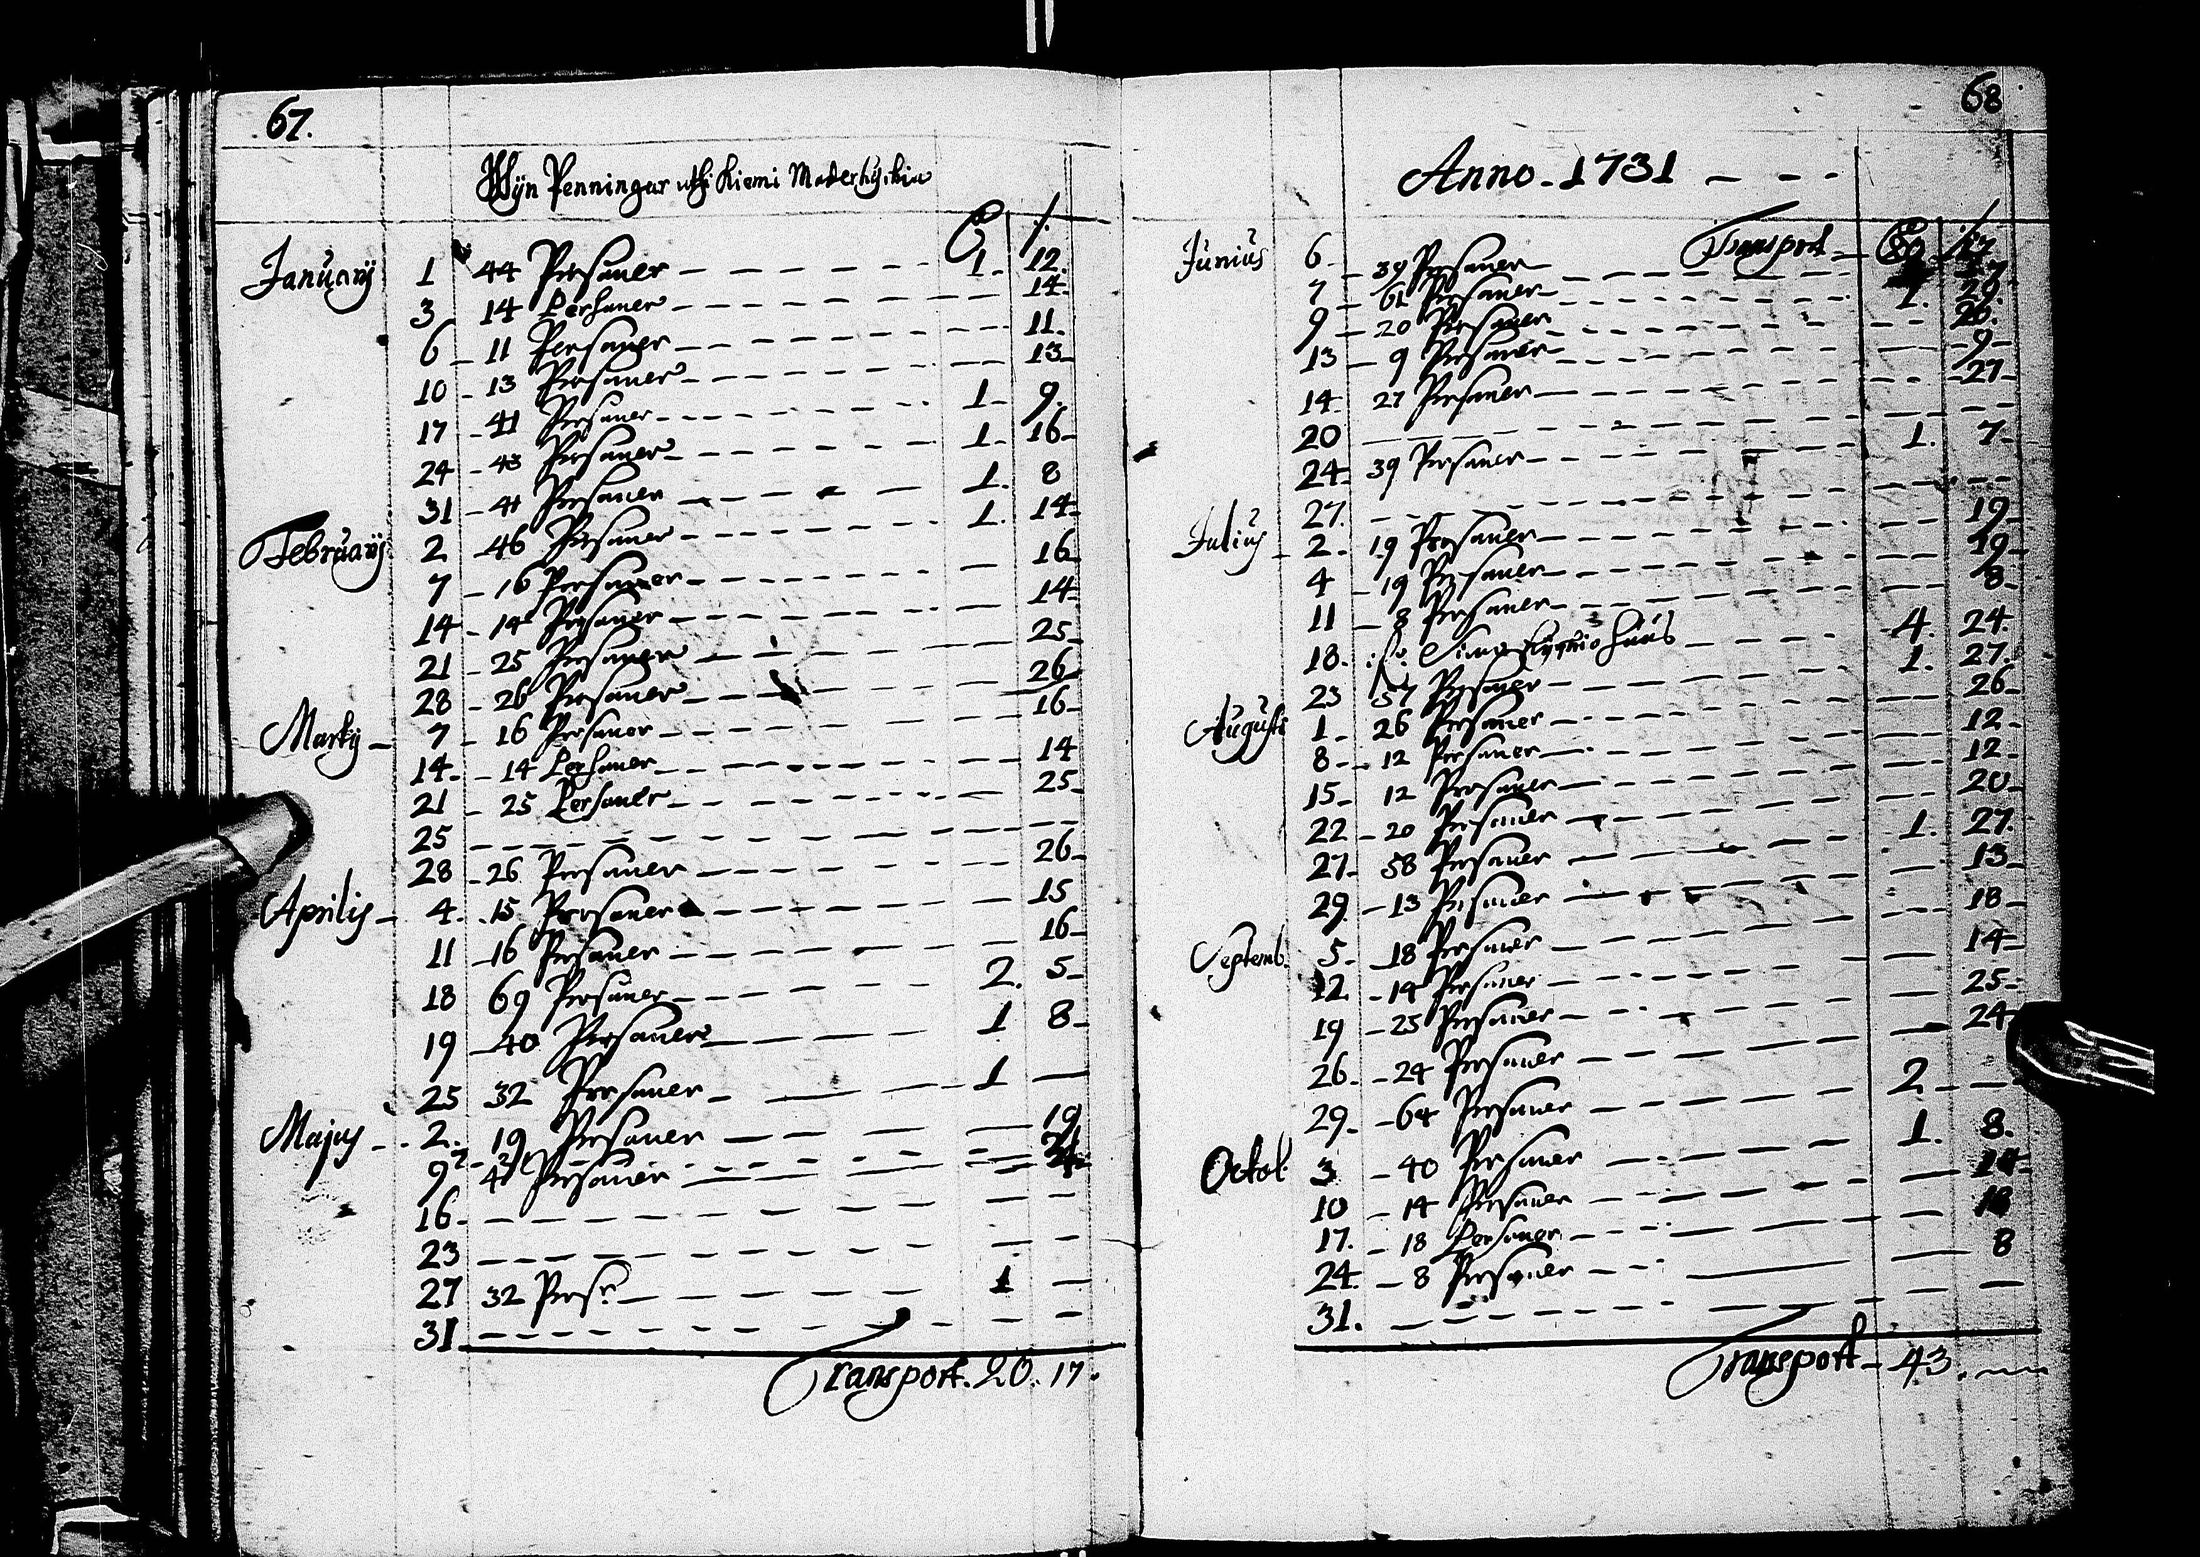 67.
Wyn Penningar uthi Kiemi Moderkyrkia
Januarij 1 44 Persåner - 1. 12.
3 14 Persåner - 14.
6 11 Persåner - 11.
10 - 13 Persåner - 13
17 - 41 Persåner - 1. 9.
24 - 43 Persåner - 1. 16
31 - 41 Persåner - 1. 8
Februarij 2 46 Persåner - 1. 14
7 - 16 Persåner - 16
14 - 14 Persåner - 14
21 - 25 Persåner - 25
28 - 26 Persåner - 26
Martij - 7 - 16 Persåner - 16
14 - 14 Persåner - 14
21 - 25 Persåner - 25
25 - - -
28 - 26 Persåner - 26
Aprilis - 4 15 Persåner - 15
11 16 Persåner - 16
18 69 Persåner - 2. 5
19 - 40 Persåner - 1 8
25 32 Persåner - 1 -
Majus - 2. 19 Persåner - 19
9 Persåner -
16 - - -
23 - - -
27 32 Persr - 1 -
31 - - -
Transport. 20. 17.
68
Anno - 1731 - - -
Transport - 20 17
Junius 6 - 39 Persåner -
7 - 61 Persåner - 1. 29
9 - 20 Persåner - 20.
13 - 9 Persåner - 9
14 27 Persåner - 27
20 - - -
24 39 Persåner - 1. 7
27. - - -
Julius - 2 - 19 Persåner - 19
4 - 19 Persåner - 19
11 - 8 Persåner - 8
18. huus - 4. 24
23 57 Persåner - 1. 27.
Augusti 1 - 26 Persåner - 26
8 - 12 Persåner - 12
15 - 12 Persåner - 12
22 - 20 Persåner - 20
27 - 58 Persåner - 1. 27.
29. - 13 Persåner - 13
Septemb. 5 - 18 Persåner - 18
12. - 14 Persåner - 14
19 - 25 Persåner - 25
26. - 24 Persåner - 24
29. - 64 Persåner - 2 -
Octob 3 - 40 Persåner - 1. 8.
10 - 14 Persåner - 14
17. - 18 Persåner - 18
24. - 8 Persåner - 8
31. - - -
Transport - 43. -